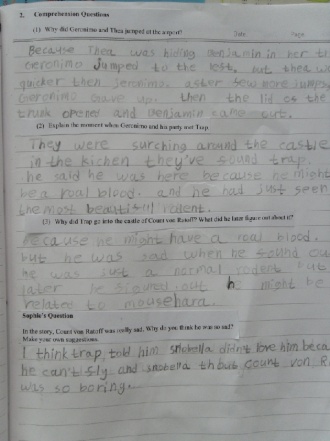 2. Comprehension Questions
(1) Why did Geronimo and Thea jumped at the airport?
Date Page
Because Thea was hiding Benjamin in her
Geronimo Jumped to the last, but thea
quicker then Jeronimo. after few more jumps
Geronimo Gave up. then the lid of the
trunk opened and Benjamin came out.
(2) Explain the moment when Geronimo and his party met Trap.
They were surching around the castle
in the kichen they've found trap.
he said he was here because he might
be a roal blood. and he had just seen
the most beautifull rodent.
(3) Why did Trap go into the castle of Count von Ratoff? What did he later figure out about it?
Because he might have a roal blood.
but he was sad when he found
he was just a normal rodent. but
later he figured out he might be
related to mousehara.
Sophie's Question
In the story, Count von Ratoff was really sad. Why do you think he was so sad?
Make your own suggestions.
I think trap told him snobella didn't love him
he can't fly and snobella count von
was so boring.